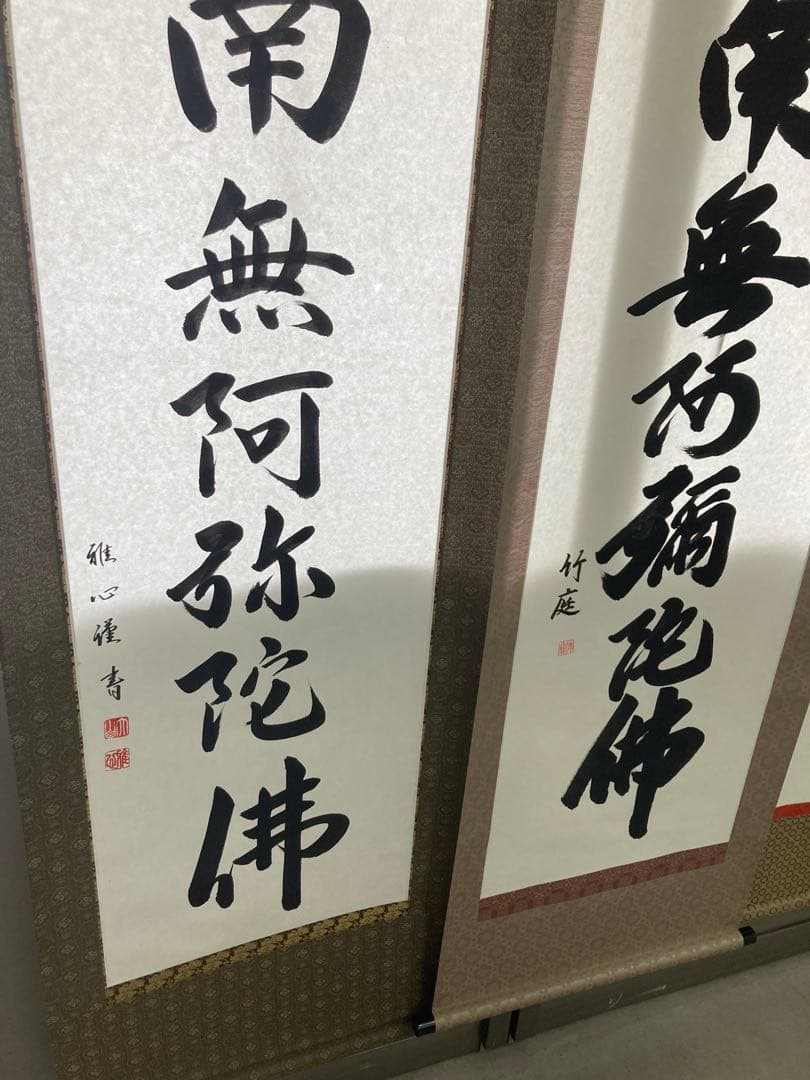 南無阿弥陀佛
雅心謹書
南無阿彌陀佛
竹庭